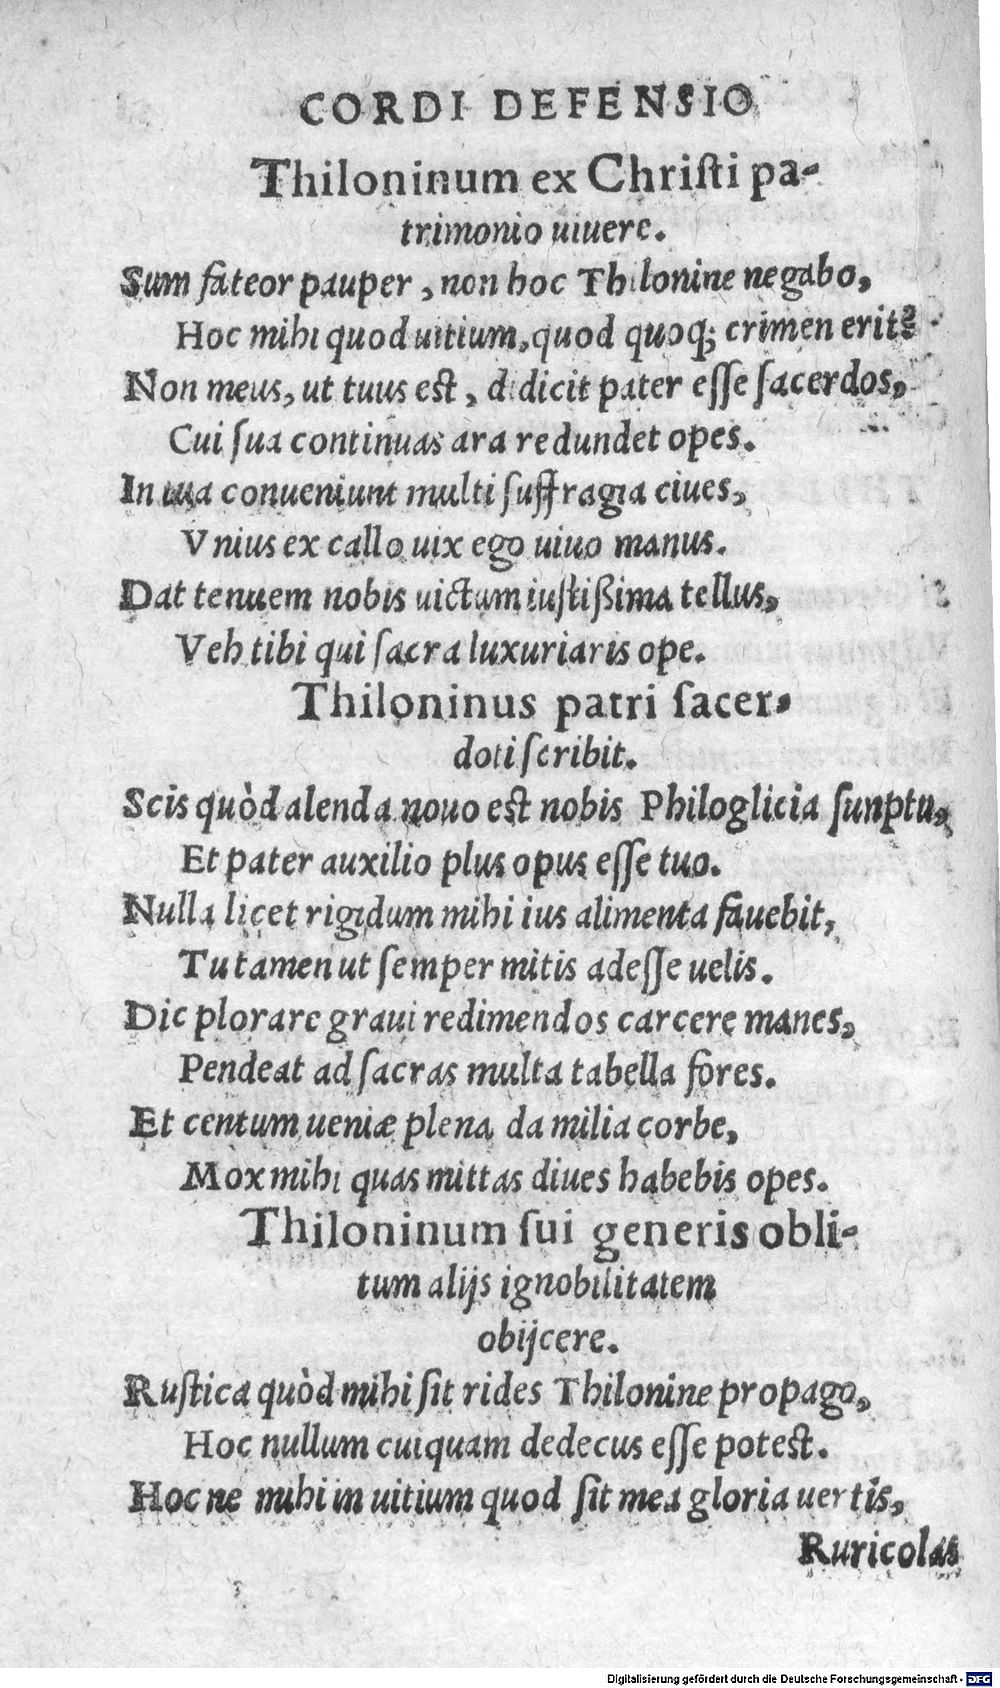 CORDI DEFENSIO
Thiloninum ex Chriſti pa-
trimonio uiuere.
Sum fateor pauper, non hoc Thilonine negabo,
Hoc mihi quod uitium, quod quoq; crimen erit?
Non meus, ut tuus est, didicit pater eſſe ſacerdos,
Cui ſua continuas ara redundet opes.
In tua conueniunt multi ſuffragia ciues,
Vnius ex callo uix ego uiuo manus.
Dat tenuem nobis uictum iuſtißima tellus,
Veh tibi qui ſacra luxuriaris ope.
Thiloninus patri ſacer-
doti ſcribit.
Scis quòd alenda nouo est nobis Philoglicia ſunptu,
Et pater auxilio plus opus eſſe tuo.
Nulla licet rigidum mihi ius alimenta fauebit,
Tu tamen ut ſemper mitis adeſſe uelis.
Dic plorare graui redimendos carcere manes,
Pendeat ad ſacras multa tabella fores.
Et centum ueniæ plena da milia corbe,
Mox mihi quas mittas diues habebis opes.
Thiloninum ſui generis obli-
tum alijs ignobilitatem
obijcere.
Ruſtica quòd mihi ſit rides Thilonine propago,
Hoc nullum cuiquam dedecus eſſe poteſt.
Hoc ne mihi in uitium quod ſit mea gloria uertis,
Ruricolas
Digitalisierung gefördert durch die Deutsche Forschungsgemeinschaft - DFG